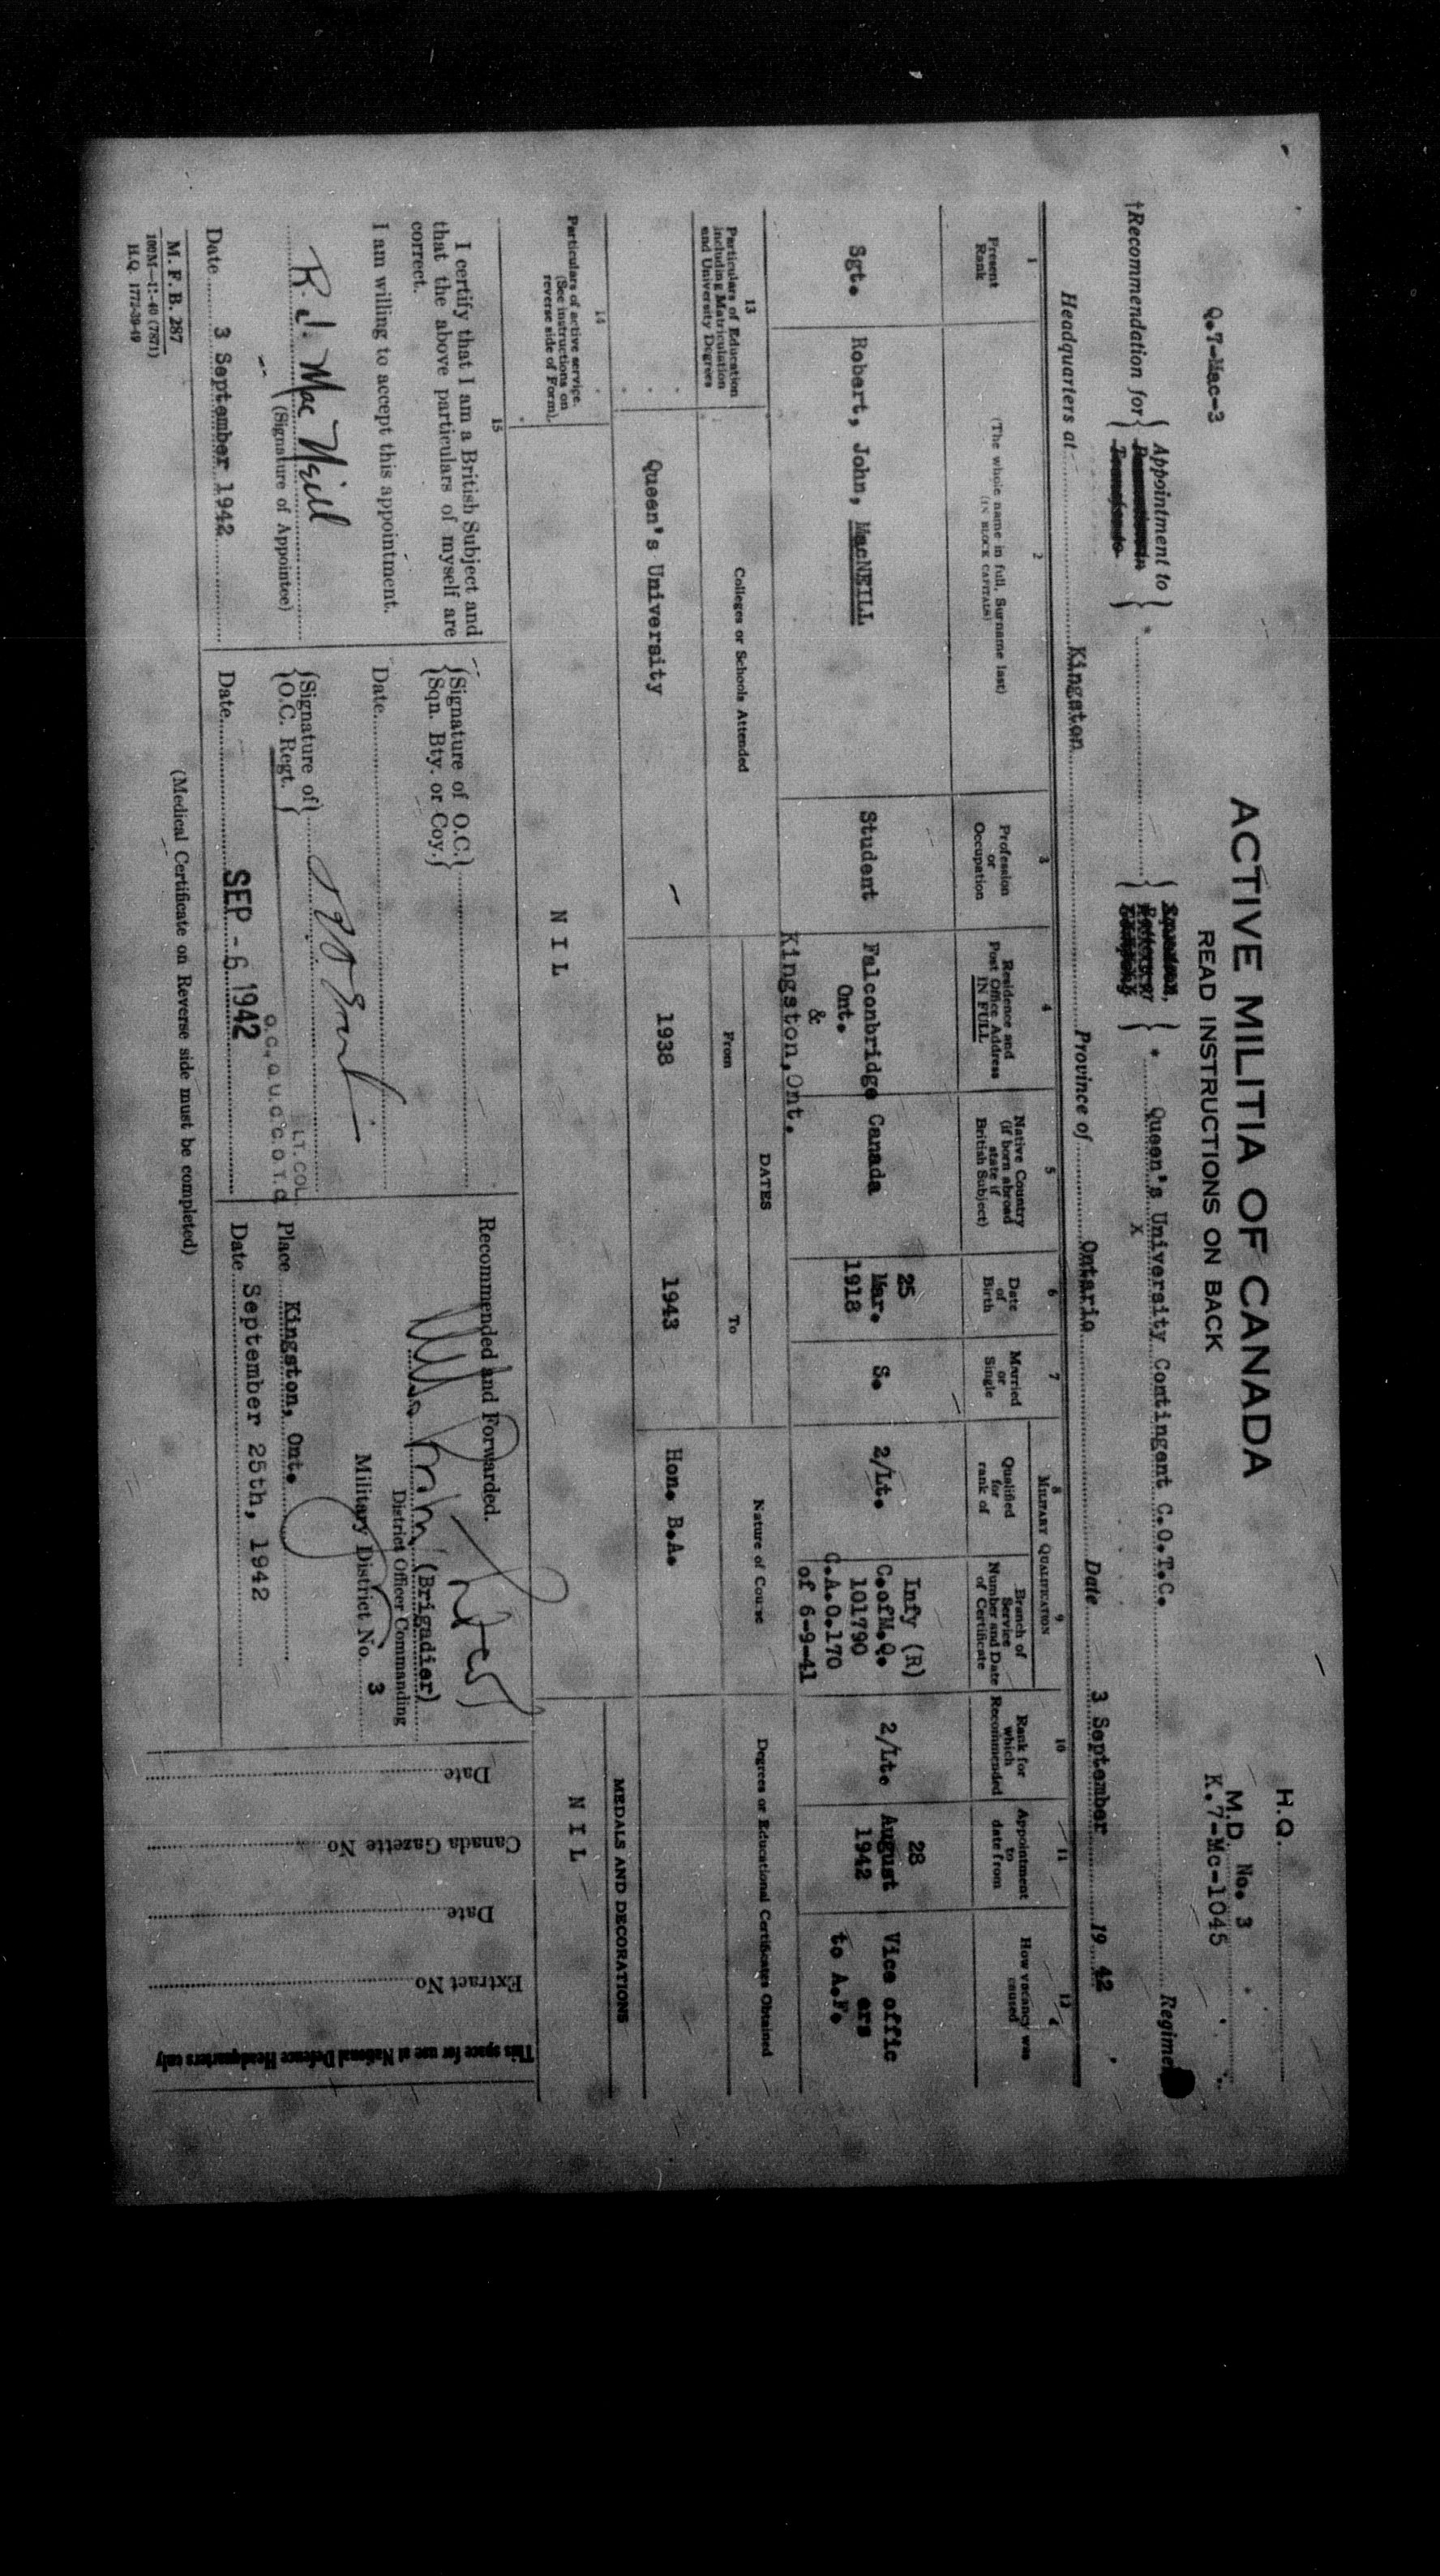 H.Q.
Q.7-Mac-3
ACTIVE MILITIA OF CANADA
M.D. No. 3
READ INSTRUCTIONS ON BACK
K.7-Mc-1045
†Recommendation for { Appointment to } * { Squadron, } * Queen's University Contingent C.O.T.C. Regimen
Promotion in Battery or
Transfer to Company x
Headquarters at Kingston Province of Ontario Date 3 September 19 42
1 2 3 4 5 6 7 8 MILITARY QUALIFICATION 9 10 11 12
Present Rank
(The whole name in full, Surname last) (IN BLOCK CAPITALS)
Profession or Occupation
Residence and Post Office Address IN FULL
Native Country (if born abroad state if British Subject)
Date of Birth
Married or Single
Qualified for rank of
Branch of Service Number and Date of Certificate
Rank for which Recommended
Appointment to date from
How vacancy was caused
Sgt.
Robert, John, MacNEILL
Student
Falconbridge Ont. & Kingston, Ont.
Canada
25 Mar. 1918
S.
2/Lt.
Infy (R) C.ofM.Q. 101790 C.A.O.170 of 6-9-41
2/Lt.
28 August 1942
Vice offic ers to A.F.
13
Particulars of Education including Matriculation and University Degrees
Colleges or Schools Attended
DATES
From
To
Nature of Course
Degrees or Educational Certificates Obtained
Queen's University
1938
1943
Hon. B.A.
14
Particulars of active service. (See instructions on reverse side of Form).
N I L
MEDALS AND DECORATIONS
N I L
15
I certify that I am a British Subject and
that the above particulars of myself are
correct.
I am willing to accept this appointment.
R. J. MacNeill
(Signature of Appointee)
Date 3 September 1942
M. F. B. 287
100M—11-40 (7871)
H.Q. 1772-39-49
{Signature of O.C.}
{Sqn. Bty. or Coy.}
Date
{Signature of}
{O.C. Regt. }
LT. COL
O.C., Q.U.C.C.O.T.C
Date SEP - 6 1942
(Medical Certificate on Reverse side must be completed)
Recommended and Forwarded.
(Brigadier)
District Officer Commanding
Military District No. 3
Place Kingston, Ont.
Date September 25th, 1942
Date
Canada Gazette No
Date
Extract No
This space for use at National Defence Headquarters only